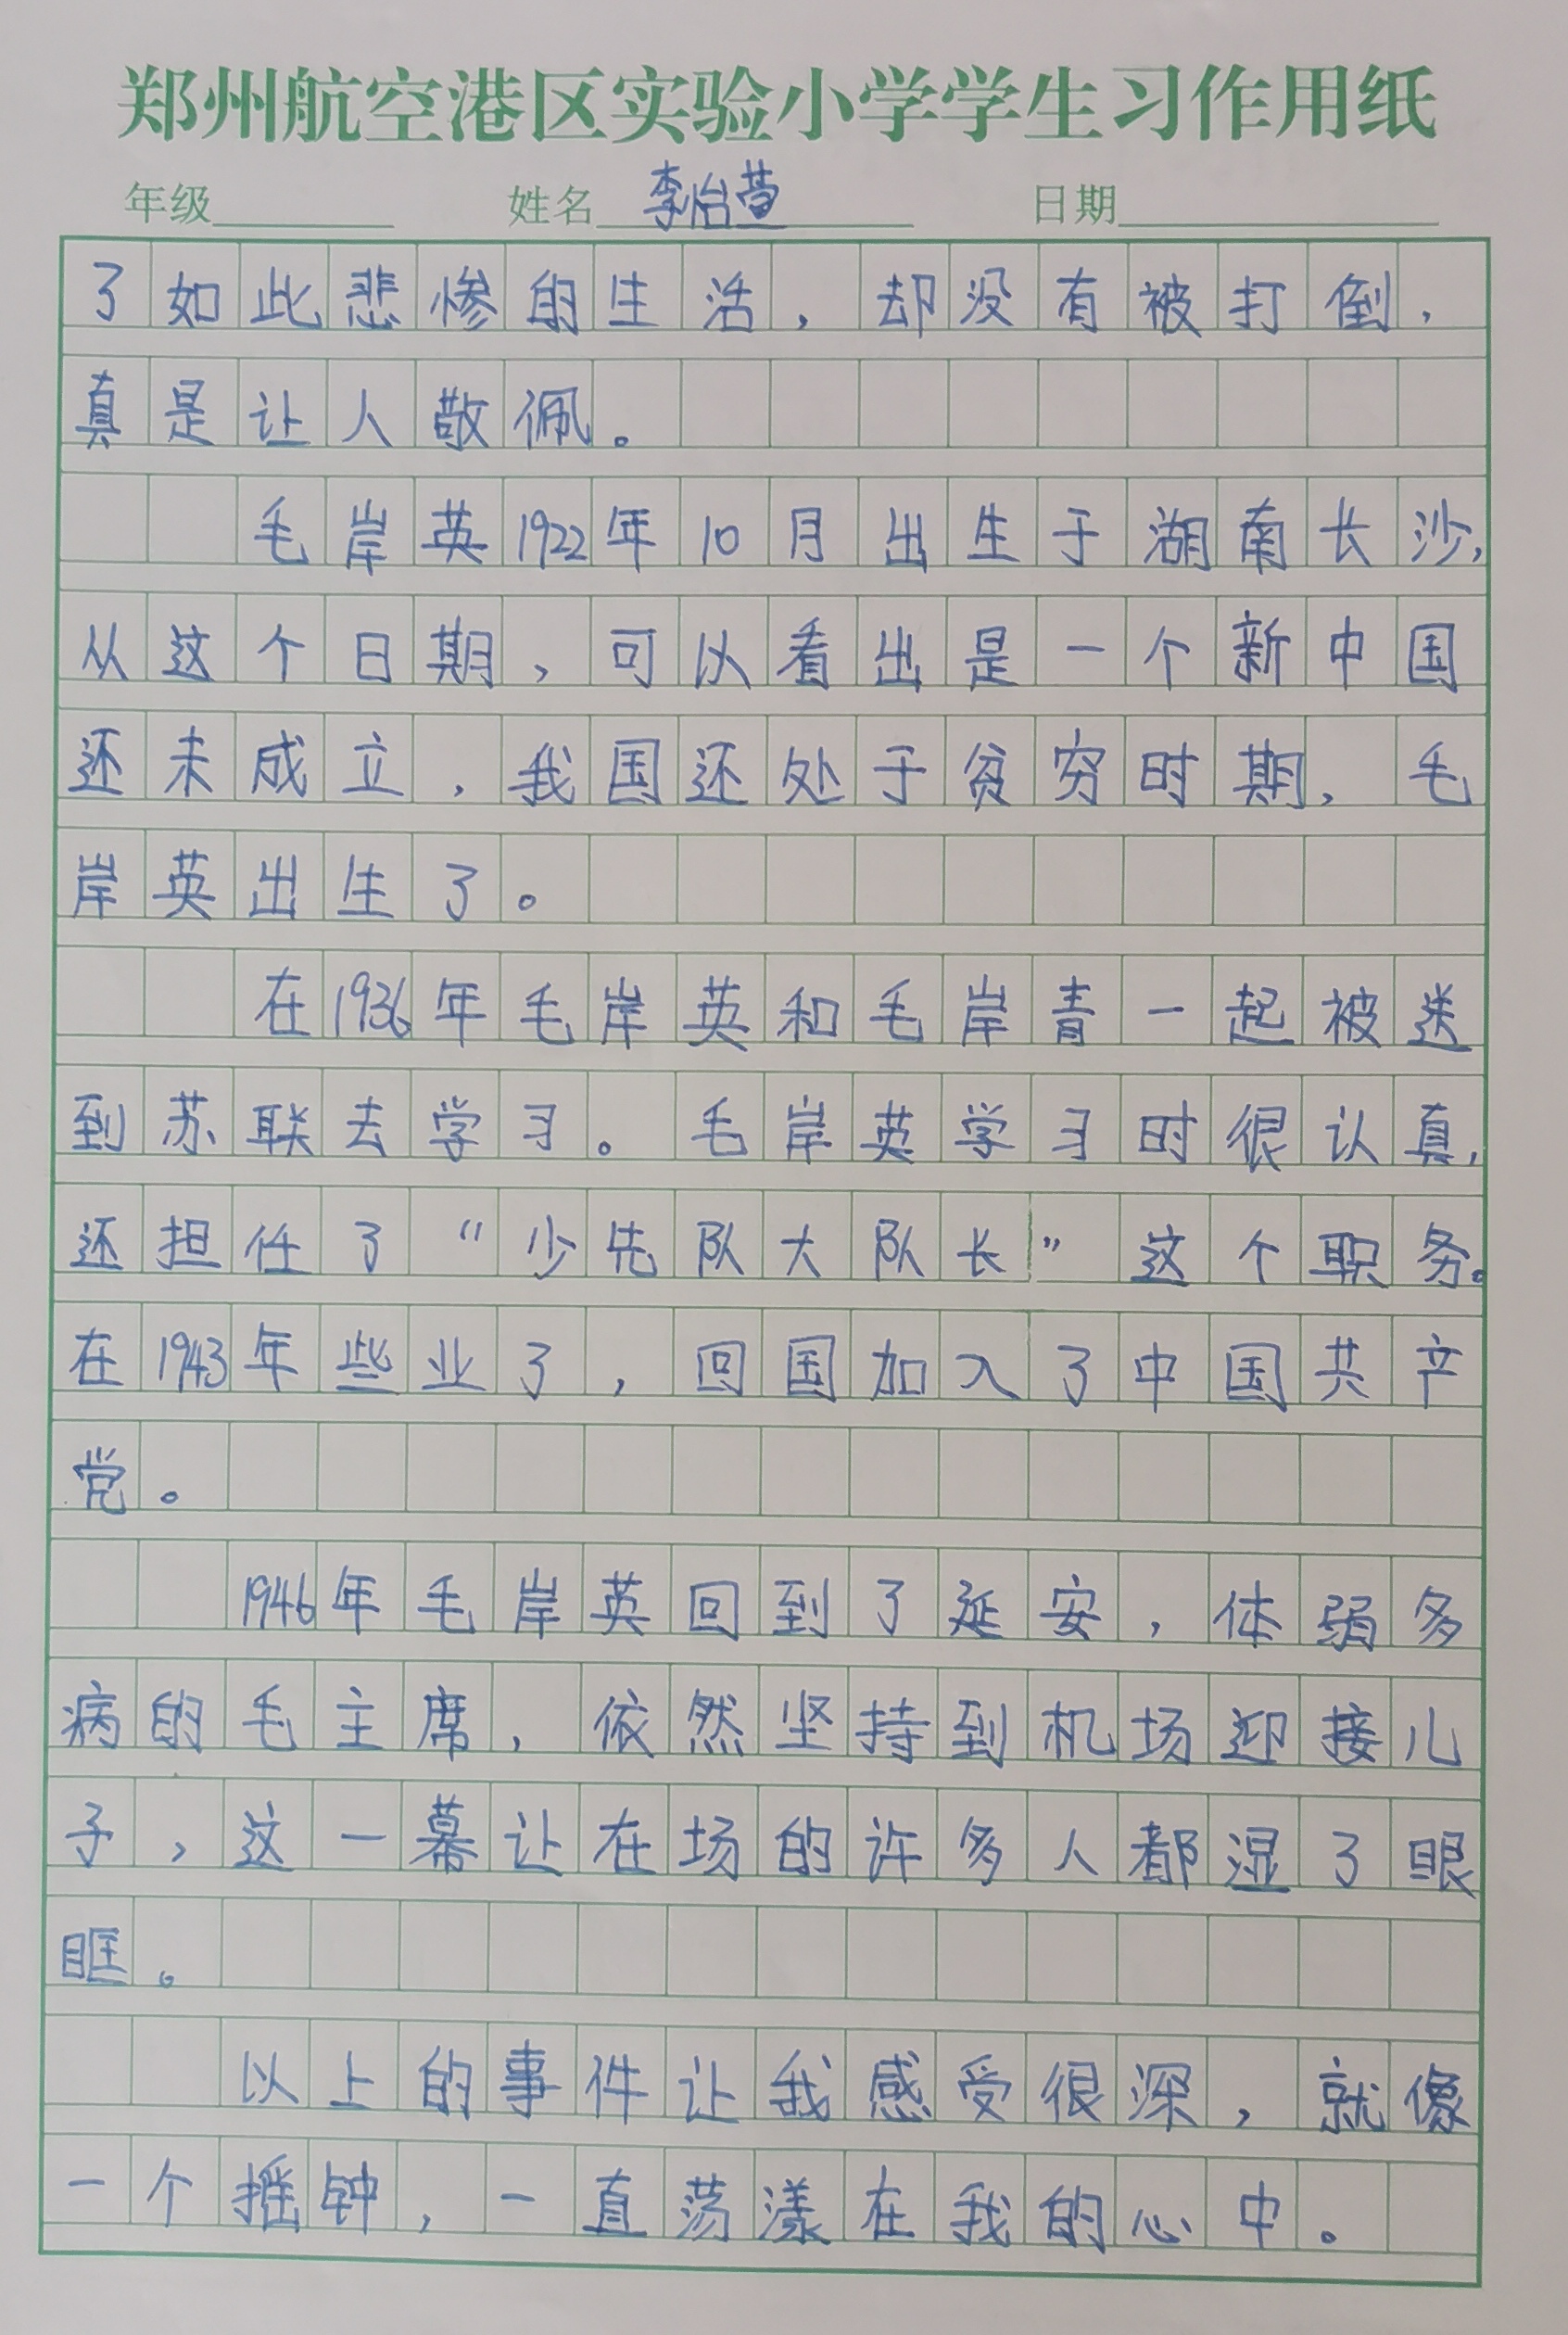 郑州航空港区实验小学学生习作用纸
年级 姓名 李怡萱 日期
了如此悲惨的生活，却没有被打倒，
真是让人敬佩。
毛岸英1922年10月出生于湖南长沙，
从这个日期，可以看出是一个新中国
还未成立，我国还处于贫穷时期，毛
岸英出生了。
在1936年毛岸英和毛岸青一起被送
到苏联去学习。毛岸英学习时很认真，
还担任了“少先队大队长”这个职务。
在1943年些业了，回国加入了中国共产
党。
1946年毛岸英回到了延安，体弱多
病的毛主席，依然坚持到机场迎接儿
子，这一幕让在场的许多人都湿了眼
眶。
以上的事件让我感受很深，就像
一个摇钟，一直荡漾在我的心中。